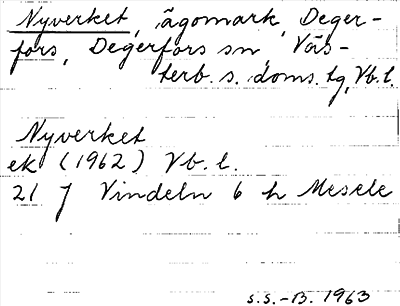 Nyverket, ägomark, Deger-
fors, Degerfors sn Väs-
terb. s. doms. tg, Vb. l.
Nyverket
ek (1962) Vb. l.
21 J Vindeln 6 h Mesele
S.S.-B. 1963